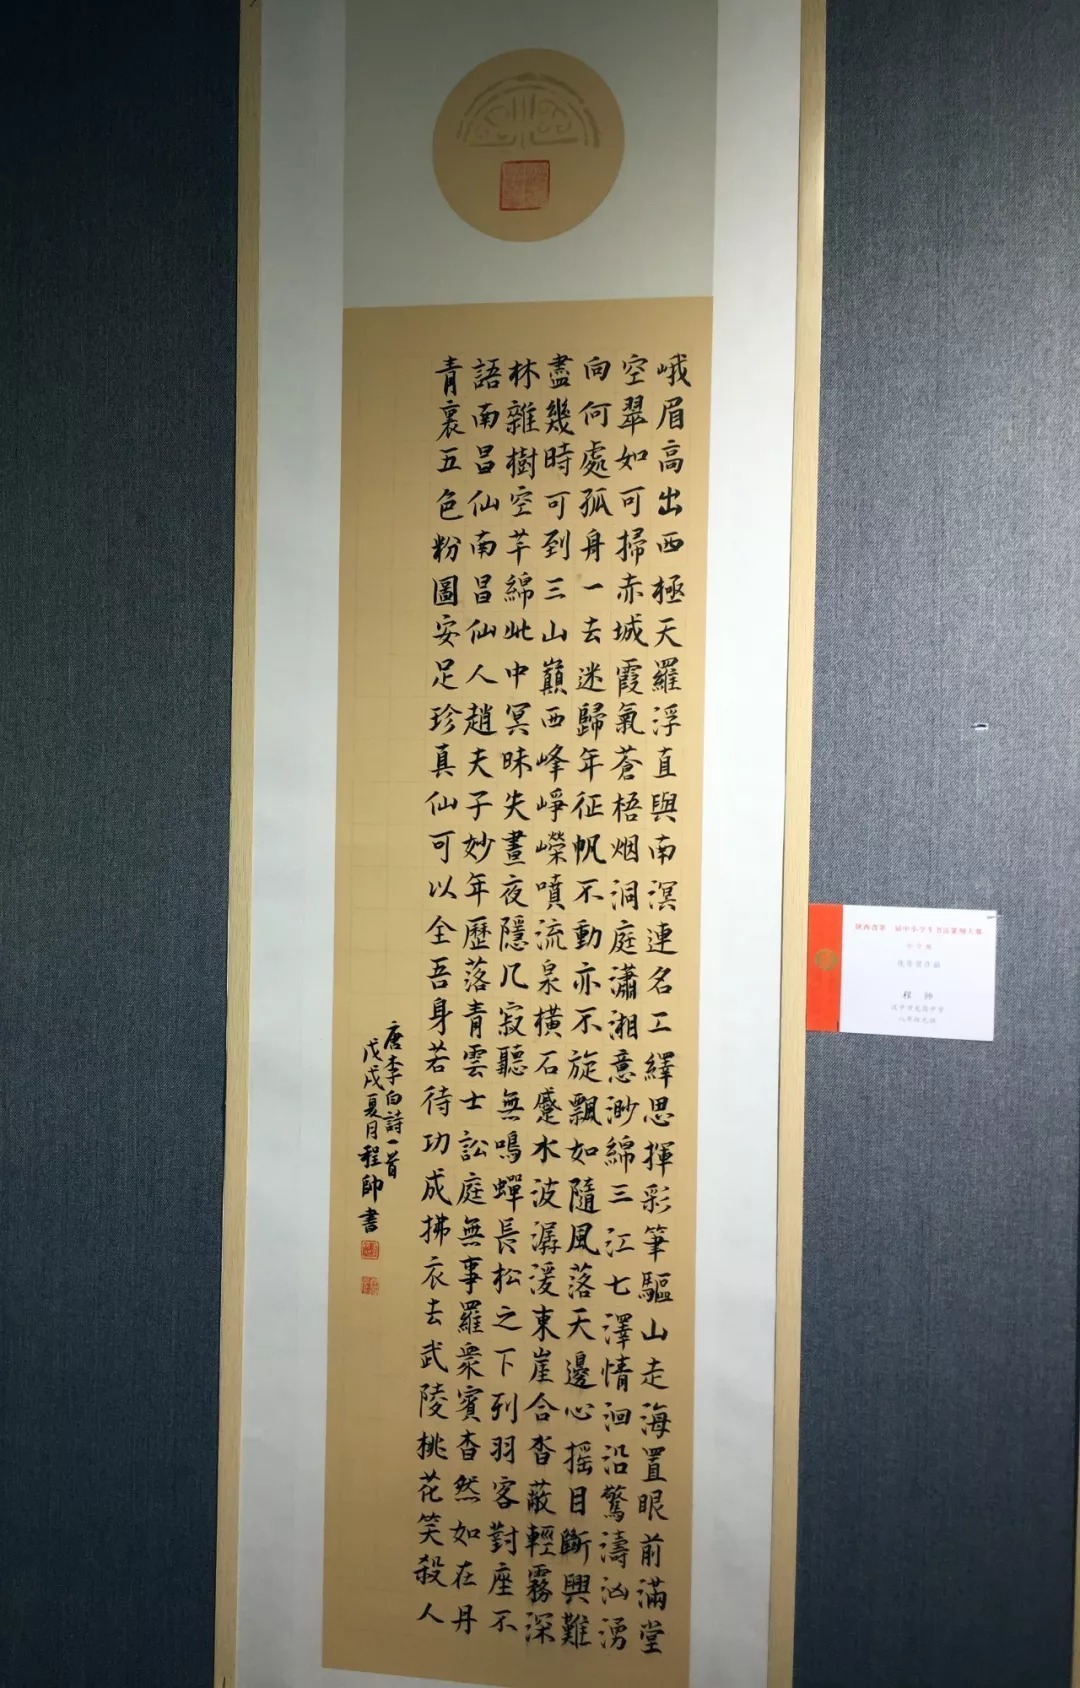 峨眉高出西極天羅浮直與南溟連名工繹思揮彩筆驅山走海置眼前滿堂
空翠如可掃赤城霞氣蒼梧烟洞庭瀟湘意渺綿三江七澤情洄沿驚濤洶湧
向何處孤身一去迷歸年征帆不動亦不旋飄如隨風落天邊心搖目斷興難
盡幾時可到三山巔西峰崢嶸噴流泉橫石蹙水波潺湲東崖合沓蔽輕霧深
林雜樹空芊綿此中冥昧失晝夜隱几寂聽無鳴蟬長松之下列羽客對座不
語南昌仙南昌仙人趙夫子妙年歷落青雲士訟庭無事羅衆賓杳然如在丹
青裏五色粉圖安足珍真仙可以全吾身若待功成拂衣去武陵桃花笑殺人
唐李白詩一首
戊戌夏月程帥書
程 帅